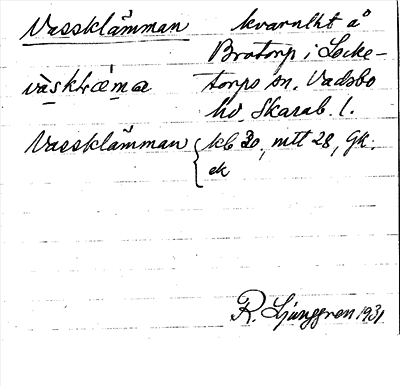 Vassklämman kvarnlht å
Brotorp i Locke-
torps sn. Vadsbo
hd. Skarab. l.
Vassklämman { kb 30, mtt 28, Gk.
ek
R. Ljunggren 1931